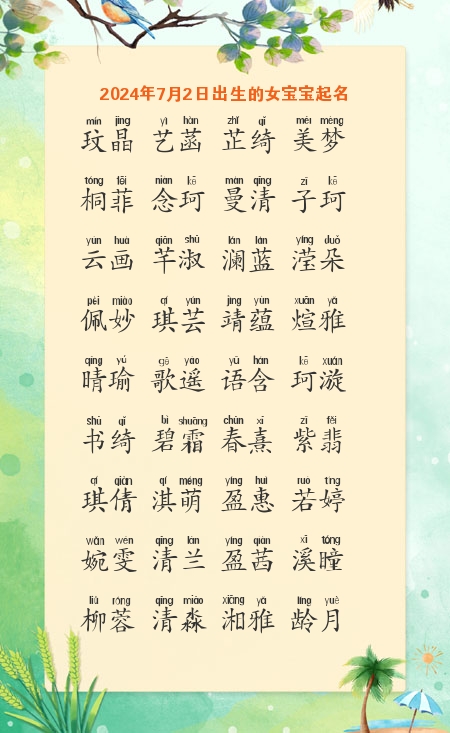 2024年7月2日出生的女宝宝起名
mín jīng yì hàn zhǐ qǐ měi mèng
玟晶 艺菡 芷绮 美梦
tóng fēi niàn kē màn qīng zǐ kē
桐菲 念珂 曼清 子珂
yún huà qiān shū lán lán yíng duǒ
云画 芊淑 澜蓝 滢朵
pèi miào qí yún jìng yùn xuān yǎ
佩妙 琪芸 靖蕴 煊雅
qíng yú gē yáo yǔ hán kē xuán
晴瑜 歌遥 语含 珂漩
shū qǐ bì shuāng chūn xī zǐ fěi
书绮 碧霜 春熹 紫翡
qí qiàn qí méng yíng huì ruò tíng
琪倩 淇萌 盈惠 若婷
wǎn wén qīng lán yíng qiàn xī tóng
婉雯 清兰 盈茜 溪瞳
liǔ róng qīng miǎo xiāng yǎ líng yuè
柳蓉 清淼 湘雅 龄月